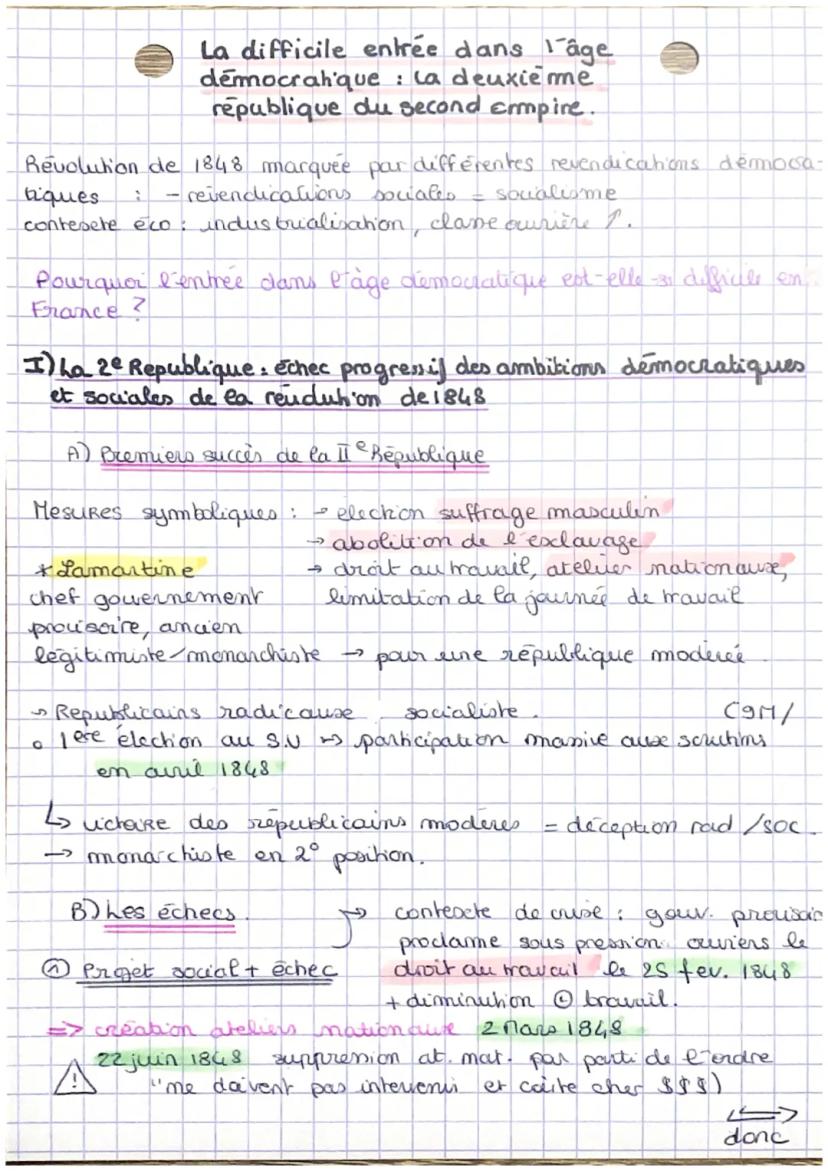 La difficile entrée dans l'âge
démocratique : la deuxième
république du second Empire.
Révolution de 1848 marquée par différentes revendications démocra-
tiques : - revendications sociales = socialisme
contexte éco : industrialisation, classe ouvrière ↑.
Pourquoi l'entrée dans l'âge démocratique est-elle si difficile en
France ?
I) La 2e Republique : échec progressif des ambitions démocratiques
et sociales de la révolution de 1848
A) Premiers succès de la IIe République
Mesures symboliques : → election suffrage masculin
→ abolition de l'esclavage
* Lamartine → droit au travail, atelier nationaux,
chef gouvernement limitation de la journée de travail
provisoire, ancien
légitimiste/monarchiste → pour une république modérée
→ Republicains radicaux socialiste. (9M/
o 1ere élection au S.U → participation massive aux scrutins
en avril 1848
↳ victoire des républicains modérés = déception rad/soc.
→ monarchiste en 2° position.
B) Les échecs. → contexte de crise : gouv. provisoir
proclame sous pression ouviers le
① Projet social + échec droit au travail le 25 fev. 1848
+ diminution travail.
=> création ateliers nationaux 2 Mars 1848
22 juin 1848 suppression at. nat. par parti de l'ordre
! "ne doivent pas intervenir et coûte cher $$$)
donc